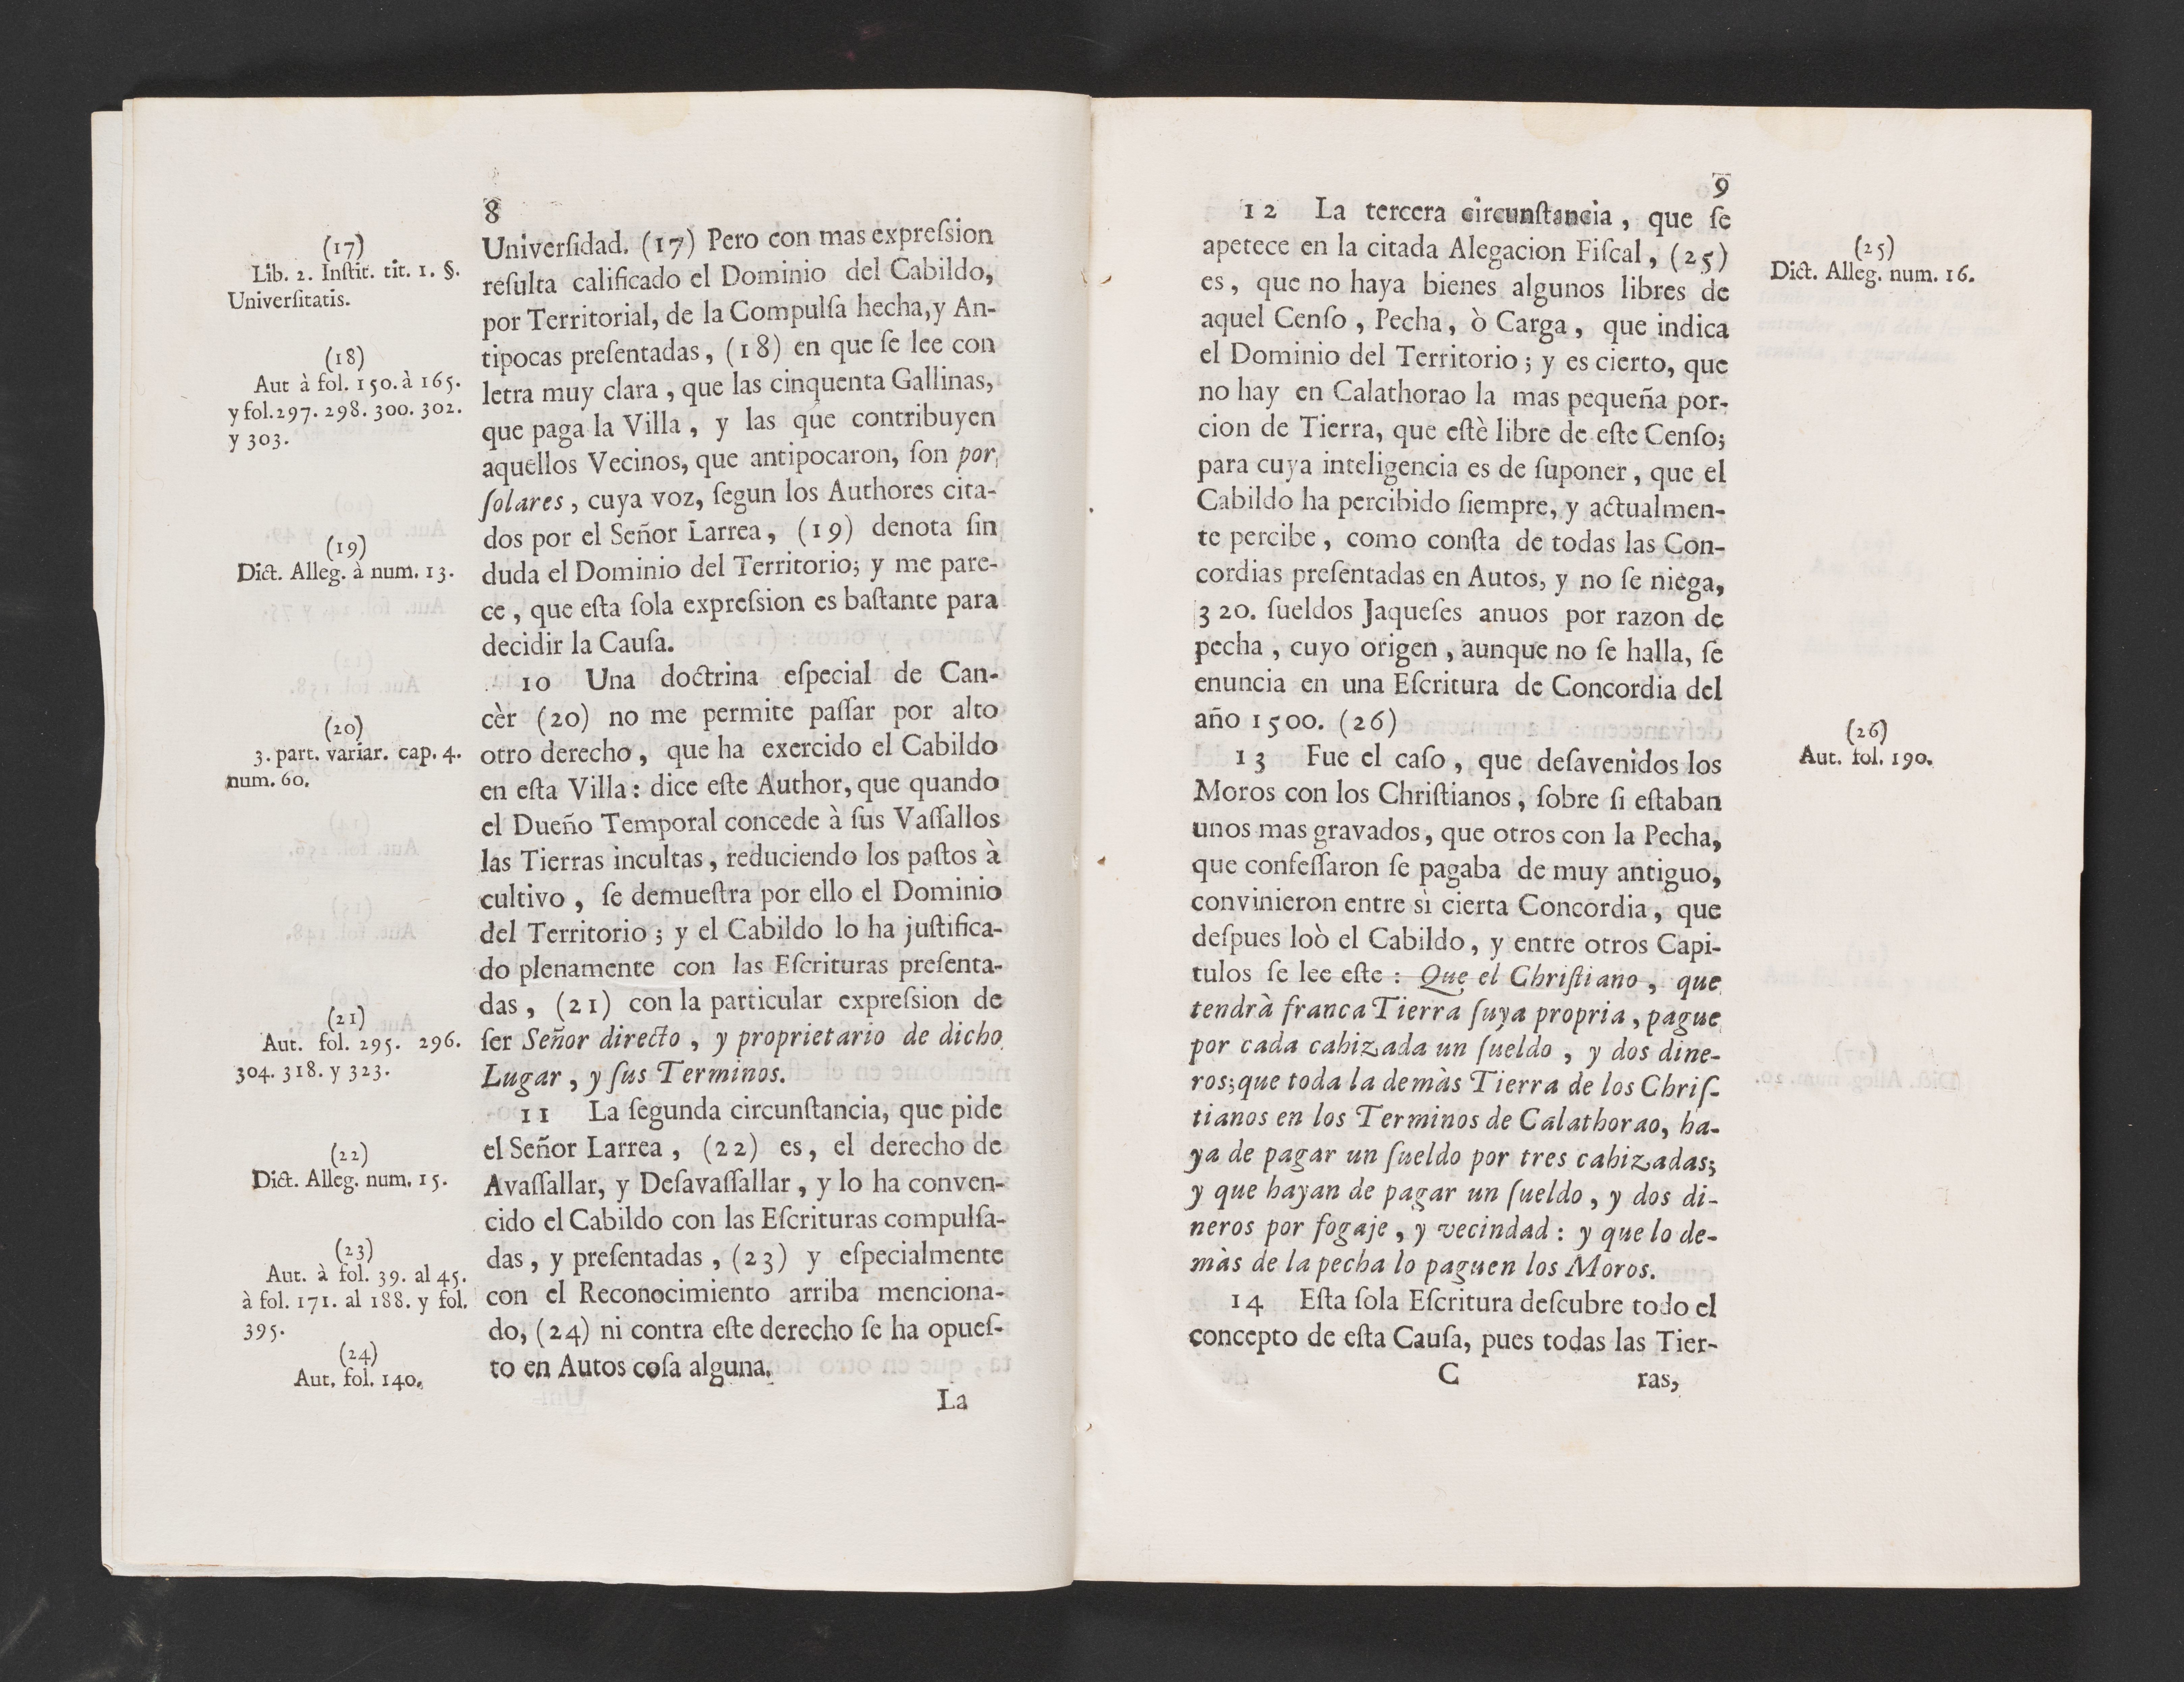 8
(17)
Lib. 2. Inſtit. tit. 1. §.
Univerſitatis.
(18)
Aut à fol. 150. à 165.
y fol. 297. 298. 300. 302.
y 303.
(19)
Dict. Alleg. à num. 13.
(20)
3. part. variar. cap. 4.
num. 60.
(21)
Aut. fol. 295. 296.
304. 318. y 323.
(22)
Dict. Alleg. num. 15.
(23)
Aut. à fol. 39. al 45.
à fol. 171. al 188. y fol.
395.
(24)
Aut. fol. 140.
Univerſidad. (17) Pero con mas expreſsion
reſulta calificado el Dominio del Cabildo,
por Territorial, de la Compulſa hecha, y An-
tipocas preſentadas, (18) en que ſe lee con
letra muy clara, que las cinquenta Gallinas,
que paga la Villa, y las que contribuyen
aquellos Vecinos, que antipocaron, ſon por
ſolares, cuya voz, ſegun los Authores cita-
dos por el Señor Larrea, (19) denota ſin
duda el Dominio del Territorio; y me pare-
ce, que eſta ſola expreſsion es baſtante para
decidir la Cauſa.
10 Una doctrina eſpecial de Can-
cèr (20) no me permite paſſar por alto
otro derecho, que ha exercido el Cabildo
en eſta Villa: dice eſte Author, que quando
el Dueño Temporal concede à ſus Vaſſallos
las Tierras incultas, reduciendo los paſtos à
cultivo, ſe demueſtra por ello el Dominio
del Territorio; y el Cabildo lo ha juſtifica-
do plenamente con las Eſcrituras preſenta-
das, (21) con la particular expreſsion de
ſer Señor directo, y proprietario de dicho
Lugar, y ſus Terminos.
11 La ſegunda circunſtancia, que pide
el Señor Larrea, (22) es, el derecho de
Avaſſallar, y Deſavaſſallar, y lo ha conven-
cido el Cabildo con las Eſcrituras compulſa-
das, y preſentadas, (23) y eſpecialmente
con el Reconocimiento arriba menciona-
do, (24) ni contra eſte derecho ſe ha opueſ-
to en Autos coſa alguna.
La
9
12 La tercera circunſtancia, que ſe
apetece en la citada Alegacion Fiſcal, (25)
es, que no haya bienes algunos libres de
aquel Cenſo, Pecha, ò Carga, que indica
el Dominio del Territorio; y es cierto, que
no hay en Calathorao la mas pequeña por-
cion de Tierra, que eſtè libre de eſte Cenſo;
para cuya inteligencia es de ſuponer, que el
Cabildo ha percibido ſiempre, y actualmen-
te percibe, como conſta de todas las Con-
cordias preſentadas en Autos, y no ſe niega,
320. ſueldos Jaqueſes anuos por razon de
pecha, cuyo origen, aunque no ſe halla, ſe
enuncia en una Eſcritura de Concordia del
año 1500. (26)
13 Fue el caſo, que deſavenidos los
Moros con los Chriſtianos, ſobre ſi eſtaban
unos mas gravados, que otros con la Pecha,
que confeſſaron ſe pagaba de muy antiguo,
convinieron entre sì cierta Concordia, que
deſpues loò el Cabildo, y entre otros Capi-
tulos ſe lee eſte: Que el Chriſtiano, que
tendrà franca Tierra ſuya propria, pague
por cada cahizada un ſueldo, y dos dine-
ros; que toda la demàs Tierra de los Chriſ-
tianos en los Terminos de Calathorao, ha-
ya de pagar un ſueldo por tres cahizadas;
y que hayan de pagar un ſueldo, y dos di-
neros por fogaje, y vecindad: y que lo de-
màs de la pecha lo paguen los Moros.
14 Eſta ſola Eſcritura deſcubre todo el
concepto de eſta Cauſa, pues todas las Tier-
C ras,
(25)
Dict. Alleg. num. 16.
(26)
Aut. fol. 190.